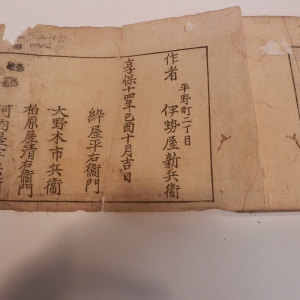 作者
平野町二丁目
伊勢屋新兵衛
享保十四年己酉十月吉日
絆屋平右衛門
大野木市兵衛
柏原屋清右衛門
河内屋宇兵衛